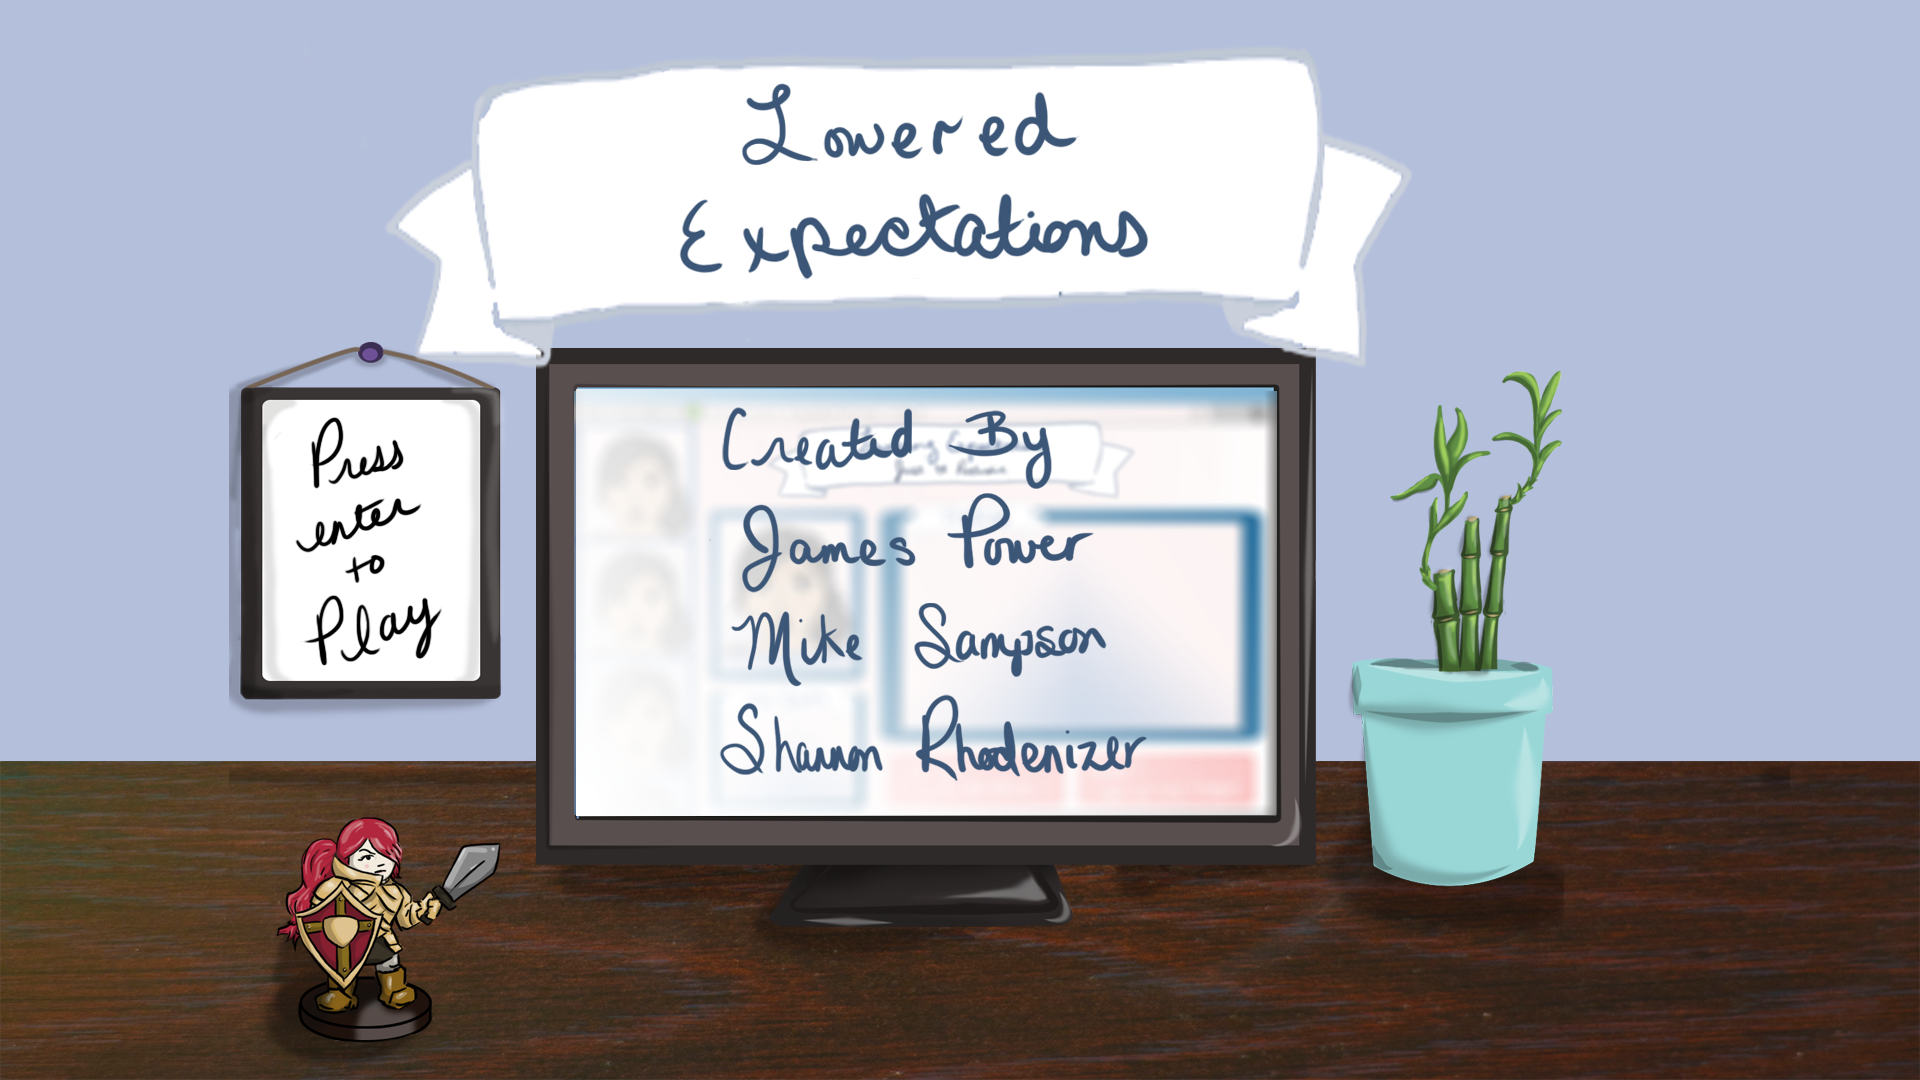 Lowered
Expectations
Press
enter
to
Play
Created By
James Power
Mike Sampson
Shannon Rhodenizer